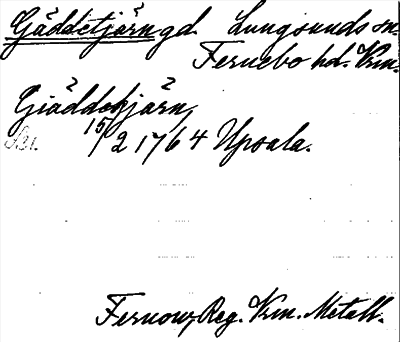 Gäddetjärn gd. Lungsunds sn.
Fernebo hd. Vrm.
Giäddehjärn,
15/2 1764 Upsala.
Fernow, Reg. Vrm. Metall.